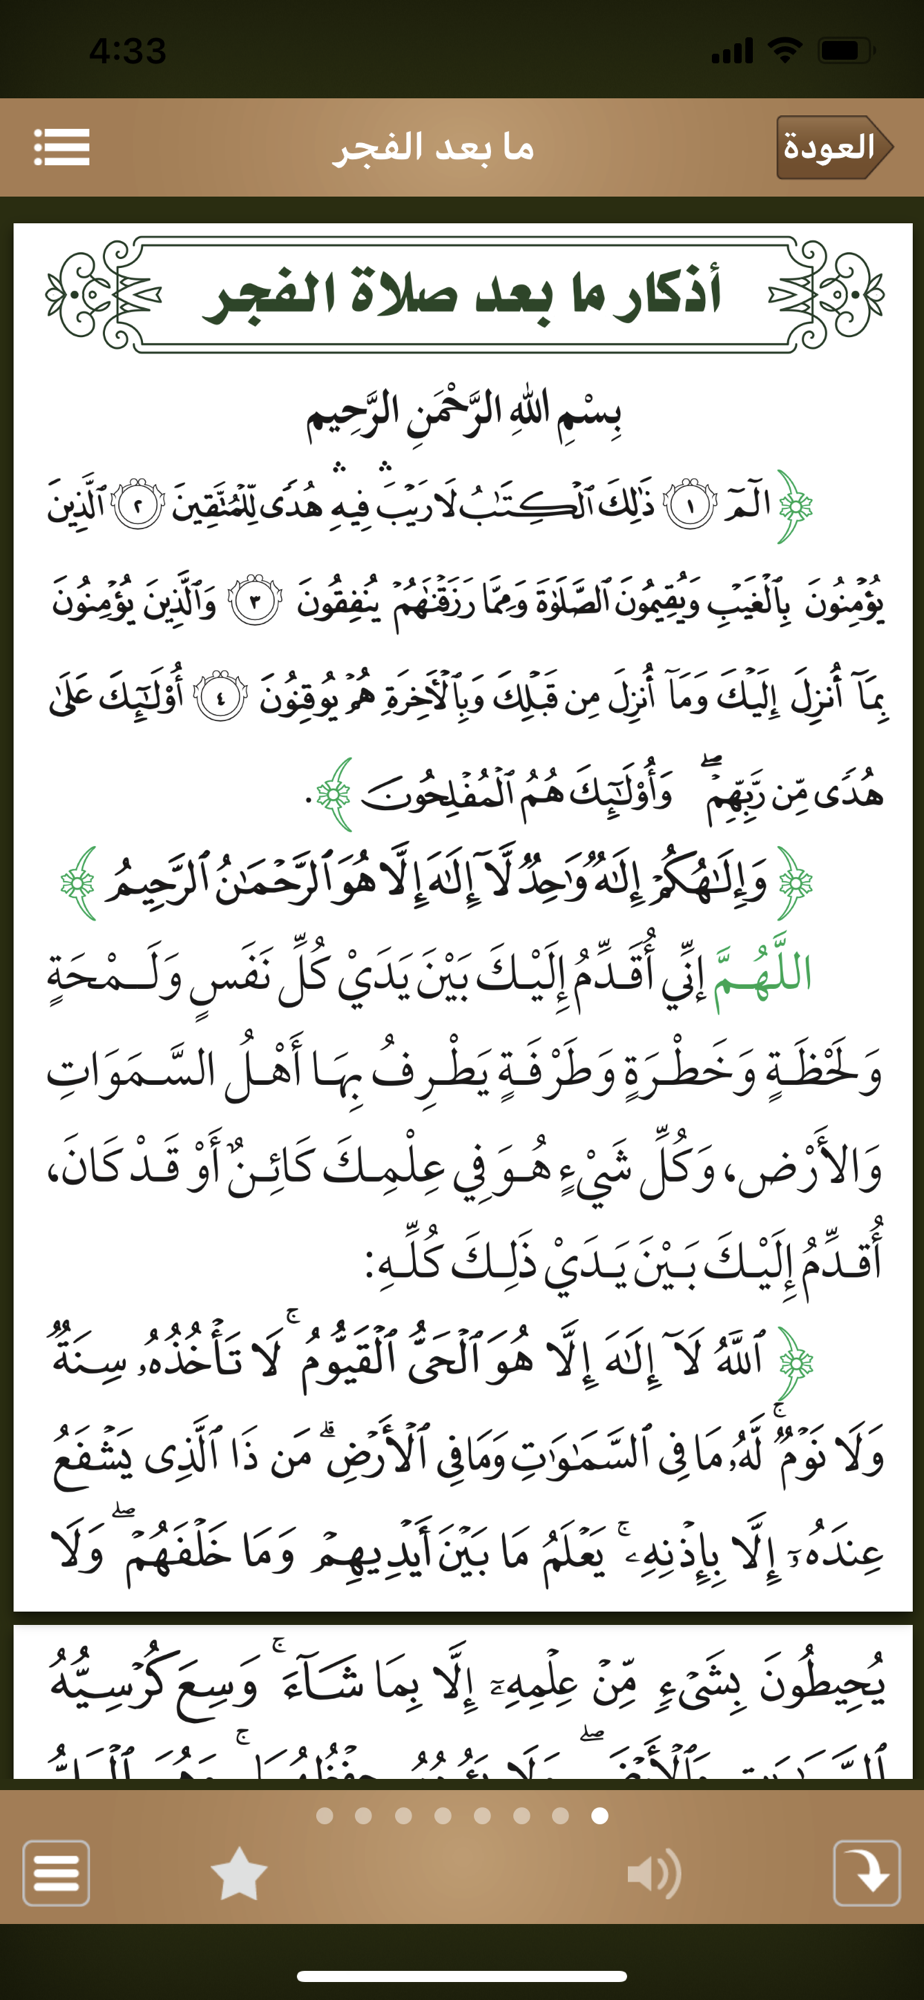 4:33
العودة
ما بعد الفجر
أذكار ما بعد صلاة الفجر
بِسْمِ اللهِ الرَّحْمَنِ الرَّحِيم
﴿ الٓمٓ ١ ذَٰلِكَ ٱلْكِتَٰبُ لَا رَيْبَ ۛ فِيهِ ۛ هُدًى لِّلْمُتَّقِينَ ٢ ٱلَّذِينَ
يُؤْمِنُونَ بِٱلْغَيْبِ وَيُقِيمُونَ ٱلصَّلَوٰةَ وَمِمَّا رَزَقْنَٰهُمْ يُنفِقُونَ ٣ وَٱلَّذِينَ يُؤْمِنُونَ
بِمَآ أُنزِلَ إِلَيْكَ وَمَآ أُنزِلَ مِن قَبْلِكَ وَبِٱلْءَاخِرَةِ هُمْ يُوقِنُونَ ٤ أُو۟لَٰٓئِكَ عَلَىٰ
هُدًى مِّن رَّبِّهِمْ ۖ وَأُو۟لَٰٓئِكَ هُمُ ٱلْمُفْلِحُونَ ﴾.
﴿ وَإِلَٰهُكُمْ إِلَٰهٌ وَٰحِدٌ لَّآ إِلَٰهَ إِلَّا هُوَ ٱلرَّحْمَٰنُ ٱلرَّحِيمُ ﴾
اللَّهُمَّ إنِّي أُقَدِّمُ إِلَيْكَ بَيْنَ يَدَيْ كُلِّ نَفَسٍ وَلَمْحَةٍ
وَلَحْظَةٍ وَخَطْرَةٍ وَطَرْفَةٍ يَطْرِفُ بِهَا أَهْلُ السَّمَوَاتِ
وَالأَرْضِ، وَكُلِّ شَيْءٍ هُوَ فِي عِلْمِكَ كَائِنٌ أَوْ قَدْ كَانَ،
أُقَدِّمُ إِلَيْكَ بَيْنَ يَدَيْ ذَلِكَ كُلِّهِ:
﴿ ٱللَّهُ لَآ إِلَٰهَ إِلَّا هُوَ ٱلْحَىُّ ٱلْقَيُّومُ ۚ لَا تَأْخُذُهُۥ سِنَةٌ
وَلَا نَوْمٌ ۚ لَّهُۥ مَا فِى ٱلسَّمَٰوَٰتِ وَمَا فِى ٱلْأَرْضِ ۗ مَن ذَا ٱلَّذِى يَشْفَعُ
عِندَهُۥٓ إِلَّا بِإِذْنِهِۦ ۚ يَعْلَمُ مَا بَيْنَ أَيْدِيهِمْ وَمَا خَلْفَهُمْ ۖ وَلَا
يُحِيطُونَ بِشَىْءٍ مِّنْ عِلْمِهِۦٓ إِلَّا بِمَا شَآءَ ۚ وَسِعَ كُرْسِيُّهُ